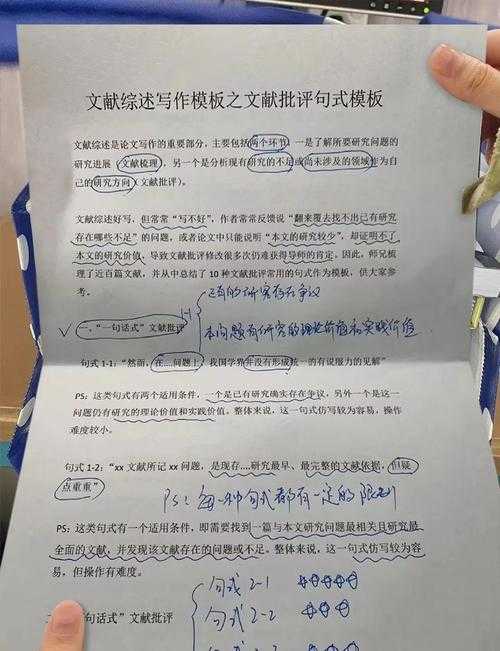 文献综述写作模板之文献批评句式模板
文献综述是论文写作的重要部分，主要包括两个环节：一是了解所要研究问题的
研究进展（文献梳理），另一个是分析现有研究的不足或尚未涉及的领域作为自
己的研究方向（文献批评）。
文献综述好写，但常常“写不好”，作者常常反馈说“翻来覆去找不出已有研究
存在哪些不足”的问题，或者论文中只能说明“本文的研究较少”，却证明不了
本文的研究价值，导致文献批评修改很多次仍难获得导师的肯定。因此，师兄梳
理了近百篇文献，并从中总结了 10 种文献批评常用的句式作为模板，供大家参
考。
已有的研究存在争议
1-1
一、“一句话式”文献批评
本问题有研究的理论价值和实践价值
句式 1-1：“然而，在....问题上，我国学界并没有形成统一的有说服力的见解”
PS：这类句式有两个适用条件，一个是已有研究确实存在争议，另外一个是这一
问题仍有研究的理论价值和实践价值。整体来说，这一句式仿写较为容易，操作
难度较小。
句式 1-2：“xx 文献所记 xx 问题，是现存....研究最早、最完整的文献依据，但疑
点重重”
PS：每一种句式都有一定的限制
PS：这类句式有一个适用条件，即需要找到一篇与本文研究问题最相关且研究最
全面的文献，并发现该文献存在的问题或不足。整体来说，这一句式仿写较为容
易，但操作有难度。
句式 2-1
句式 2-2
句话式”文献批评